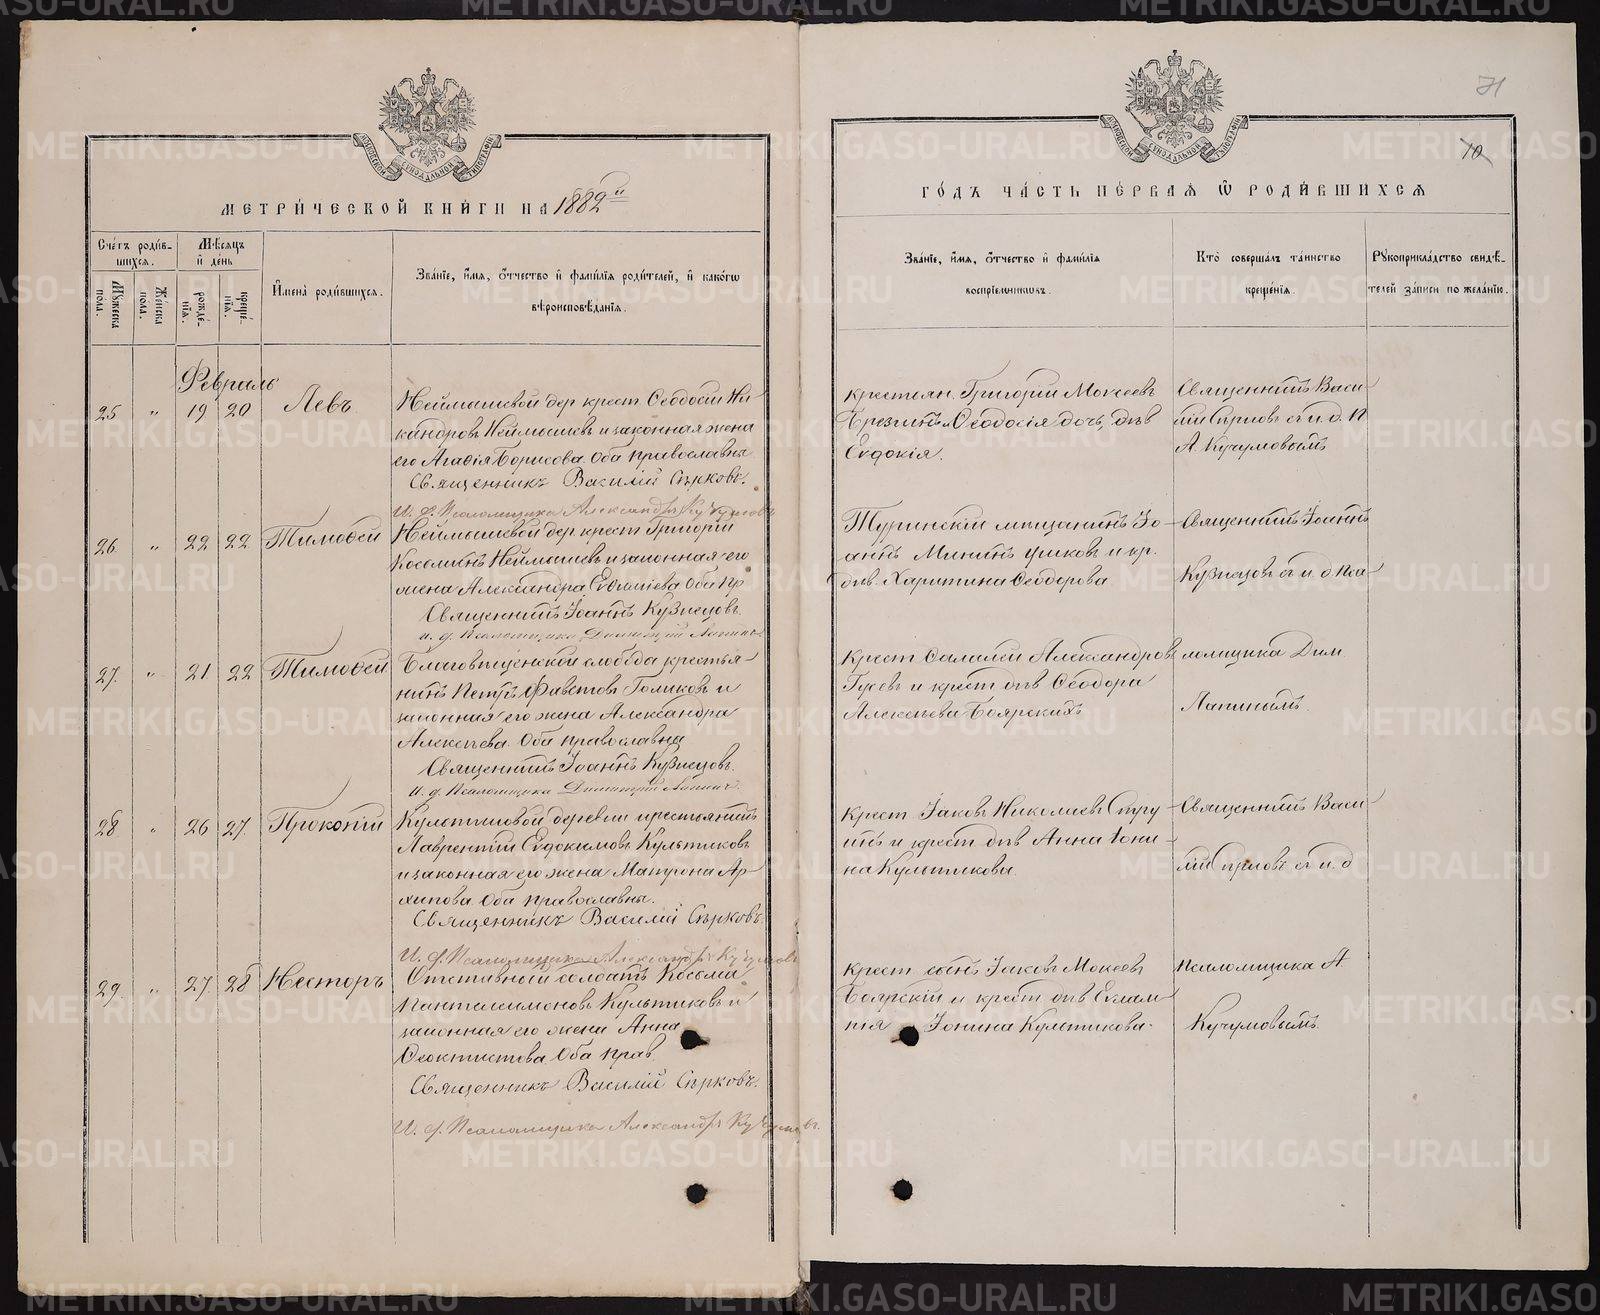 МЕТРИ́ЧЕСКОЙ КНИ́ГИ НА 1882 й
Сче́тъ роди́в-
шихся.
Мѣсяцъ
и҆ де́нь
Мꙋжеска
пола.
Же́нска
пола.
рожде́-
нїя.
креще́-
нїя.
И҆мена̀ роди́вшихся.
Зва́нїе, и҆́мя, ѻ҆́тчество и҆ фами́лїя роди́телей, и҆ како́гѡ
вѣроисповѣ́данїя.
Февраль
25 " 19 20 Левъ
Неймышевой дер. крест. Ѳеодосій Ни-
кандровъ Неймышевъ и законная жена
его Агафія Борисова. Оба православны
Священникъ Василій Сѣрковъ.
И. д. Псаломщика Александръ Кучумовъ
26. " 22 22 Тимоѳей
Неймышевой дер. крест. Григорій
Косминъ Неймышевъ и законная его
жена Александра Евѳиміева Оба пр
Священникъ Іоаннъ Кузнецовъ.
и. д. Псаломщика Димитрій Лапинъ
27. " 21 22 Тимоѳей
Благовѣщенской слобода крестья-
нинъ Петръ Фавстовъ Голиковъ и
законная его жена Александра
Алексѣева. Оба православны
Священникъ Іоаннъ Кузнецовъ.
И. д. Псаломщика Димитрій Лапинъ.
28 " 26 27. Прокопій
деревни крестьянинъ
Лаврентій Евдокимовъ Культиковъ
и законная его жена Матрона Ар-
хипова. Оба православны.
Священникъ Василій Сѣрковъ.
И. д. Псаломщика Александръ Кучумовъ
29. " 27 28 Несторъ
Отставный солдатъ Косьма
Пантелеимоновъ Культиковъ и
законная его жена Анна
Ѳеоктистова. Оба прав.
Священникъ Василій Сѣрковъ.
И. д. Псаломщика Александръ Кучумовъ.
71
70
ГО́ДЪ ЧА́СТЬ ПЕ́РВАЯ Ѽ РОДИ́ВШИХСЯ
Зва́нїе, и҆́мя, ѻ҆́тчество и҆ фами́лїя
воспрїе́мникѡвъ.
Кто̀ соверша́лъ та́инство
креще́нїя.
Рꙋкоприкла́дство свидѣ́-
телей за́писи по жела́нїю.
крестьян. Григорій Мокеевъ
Ѳеодосія дочь дѣв
Евдокія.
Священникъ Васи-
лій Сѣрковъ съ и. д. П
А. Кучумовымъ
Туринскій мѣщанинъ Іо-
аннъ Мининъ Ушковъ и кр.
дѣв. Харитина Ѳеодорова
Священникъ Іоаннъ
Кузнецовъ съ и. д. Пса-
Крест. Александровъ
Гусевъ и крест. дѣв. Ѳеодора
Алексѣева Боярскихъ
ломщика Дим.
Лапинымъ.
Крест. Іаковъ Николаевъ Стру
инъ и крест. дѣв. Анна Іони-
на Культикова.
Священникъ Васи-
лій Сѣрковъ съ и. д.
Крест. сынъ Іаковъ Мокеевъ
Боярскій и крест. дѣв. Евлам-
пія Іонина Культикова.
Псаломщика А.
Кучумовымъ.
METRIKI.GASO-URAL.RU